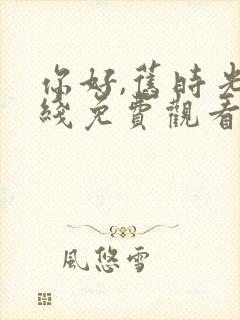 你好,舊時光
綫免費觀看
風悠雪